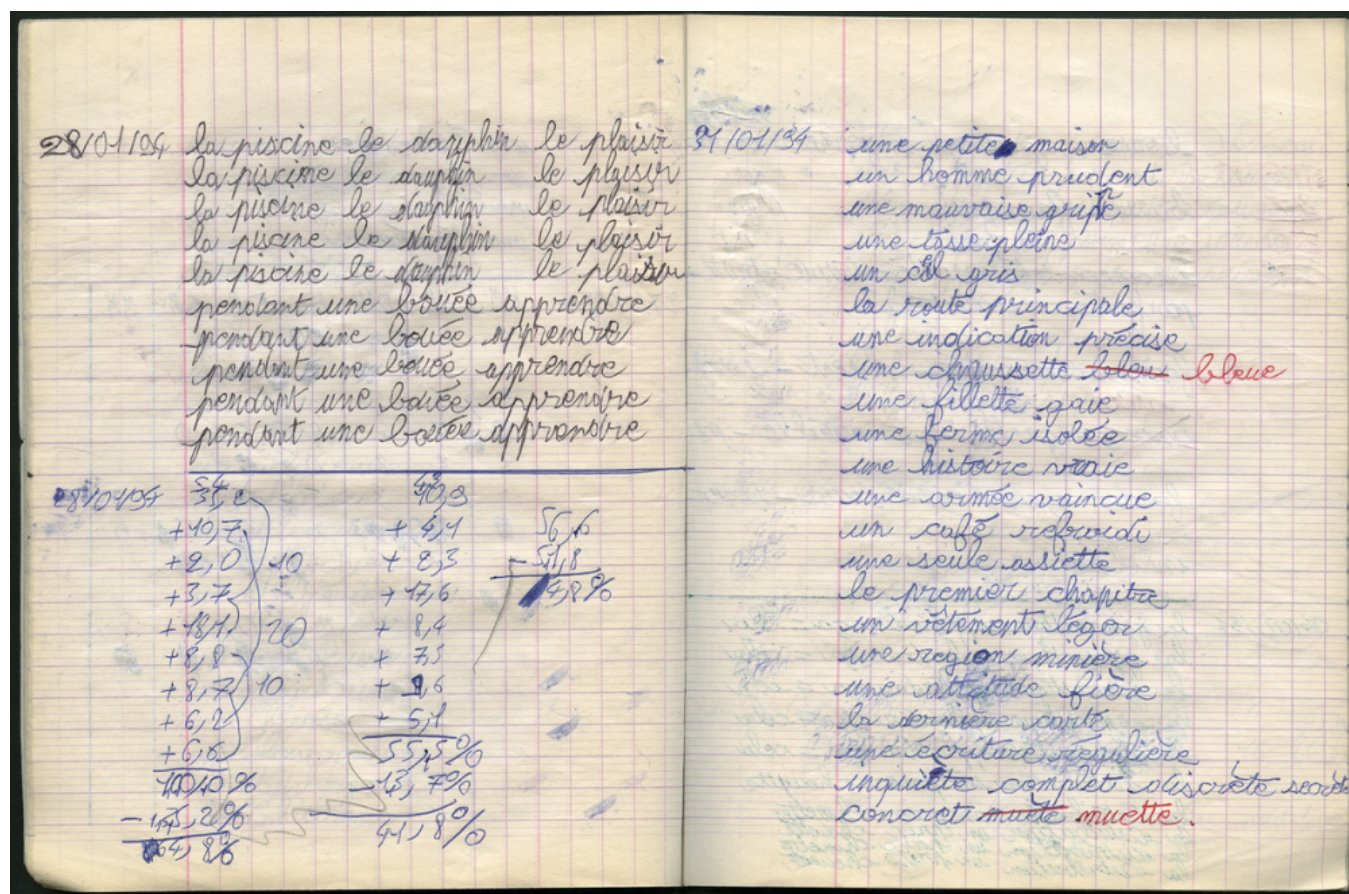 28/01/94 la piscine le dauphin le plaisir
la piscine le dauphin le plaisir
la piscine le dauphin le plaisir
la piscine le dauphin le plaisir
la piscine le dauphin le plaisir
pendant une bouée apprendre
pendant une bouée apprendre
pendant une bouée apprendre
pendant une bouée apprendre
pendant une bouée apprendre
28/01/94
+10,7
+2,0 10
+3,7
+18,1 20
+8,8
+8,7 10
+6,2
+6,6
%
%
64,8%
+ 4,1
+ 2,3
+ 17,6
+ 8,4
+ 7,5
+ 5,1
55,5%
- 13,7%
41,8%
56,6
- 51,8
4,8%
31/01/94 une petite maison
un homme prudent
une mauvaise grippe
une tasse pleine
un ciel gris
la route principale
une indication précise
une chaussette bleu bleue
une fillette gaie
une ferme isolée
une histoire vraie
une armée vaincue
un café refroidi
une seule assiette
le premier chapitre
un vêtement léger
une region minière
une attitude fière
la dernière carte
une écriture régulière
inquiète complet discrète secrète
concret muète muette.